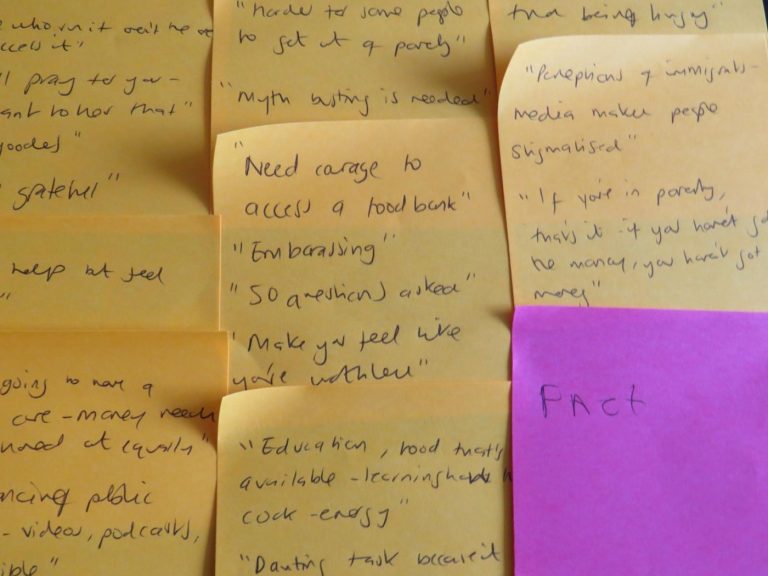 who run it
access it"
pray for you -
want to hear that"
"
grateful"
help but feel
"
going to have a
care - money needs
at equally"
public
- videos, podcasts,
"
"Harder for some people
to get out of poverty"
"Myth busting is needed"
"Need courage to
access a foodbank"
"Embarassing"
"50 questions asked"
"Make you feel like
you're worthless"
"Education, food that's
available - learning how
cook - energy"
"Daunting task because it
being hungry"
"Perceptions of immigrants -
media makes people
stigmatised"
"If you're in poverty,
that's it - if you haven't got
the money, you haven't got
money"
FACT